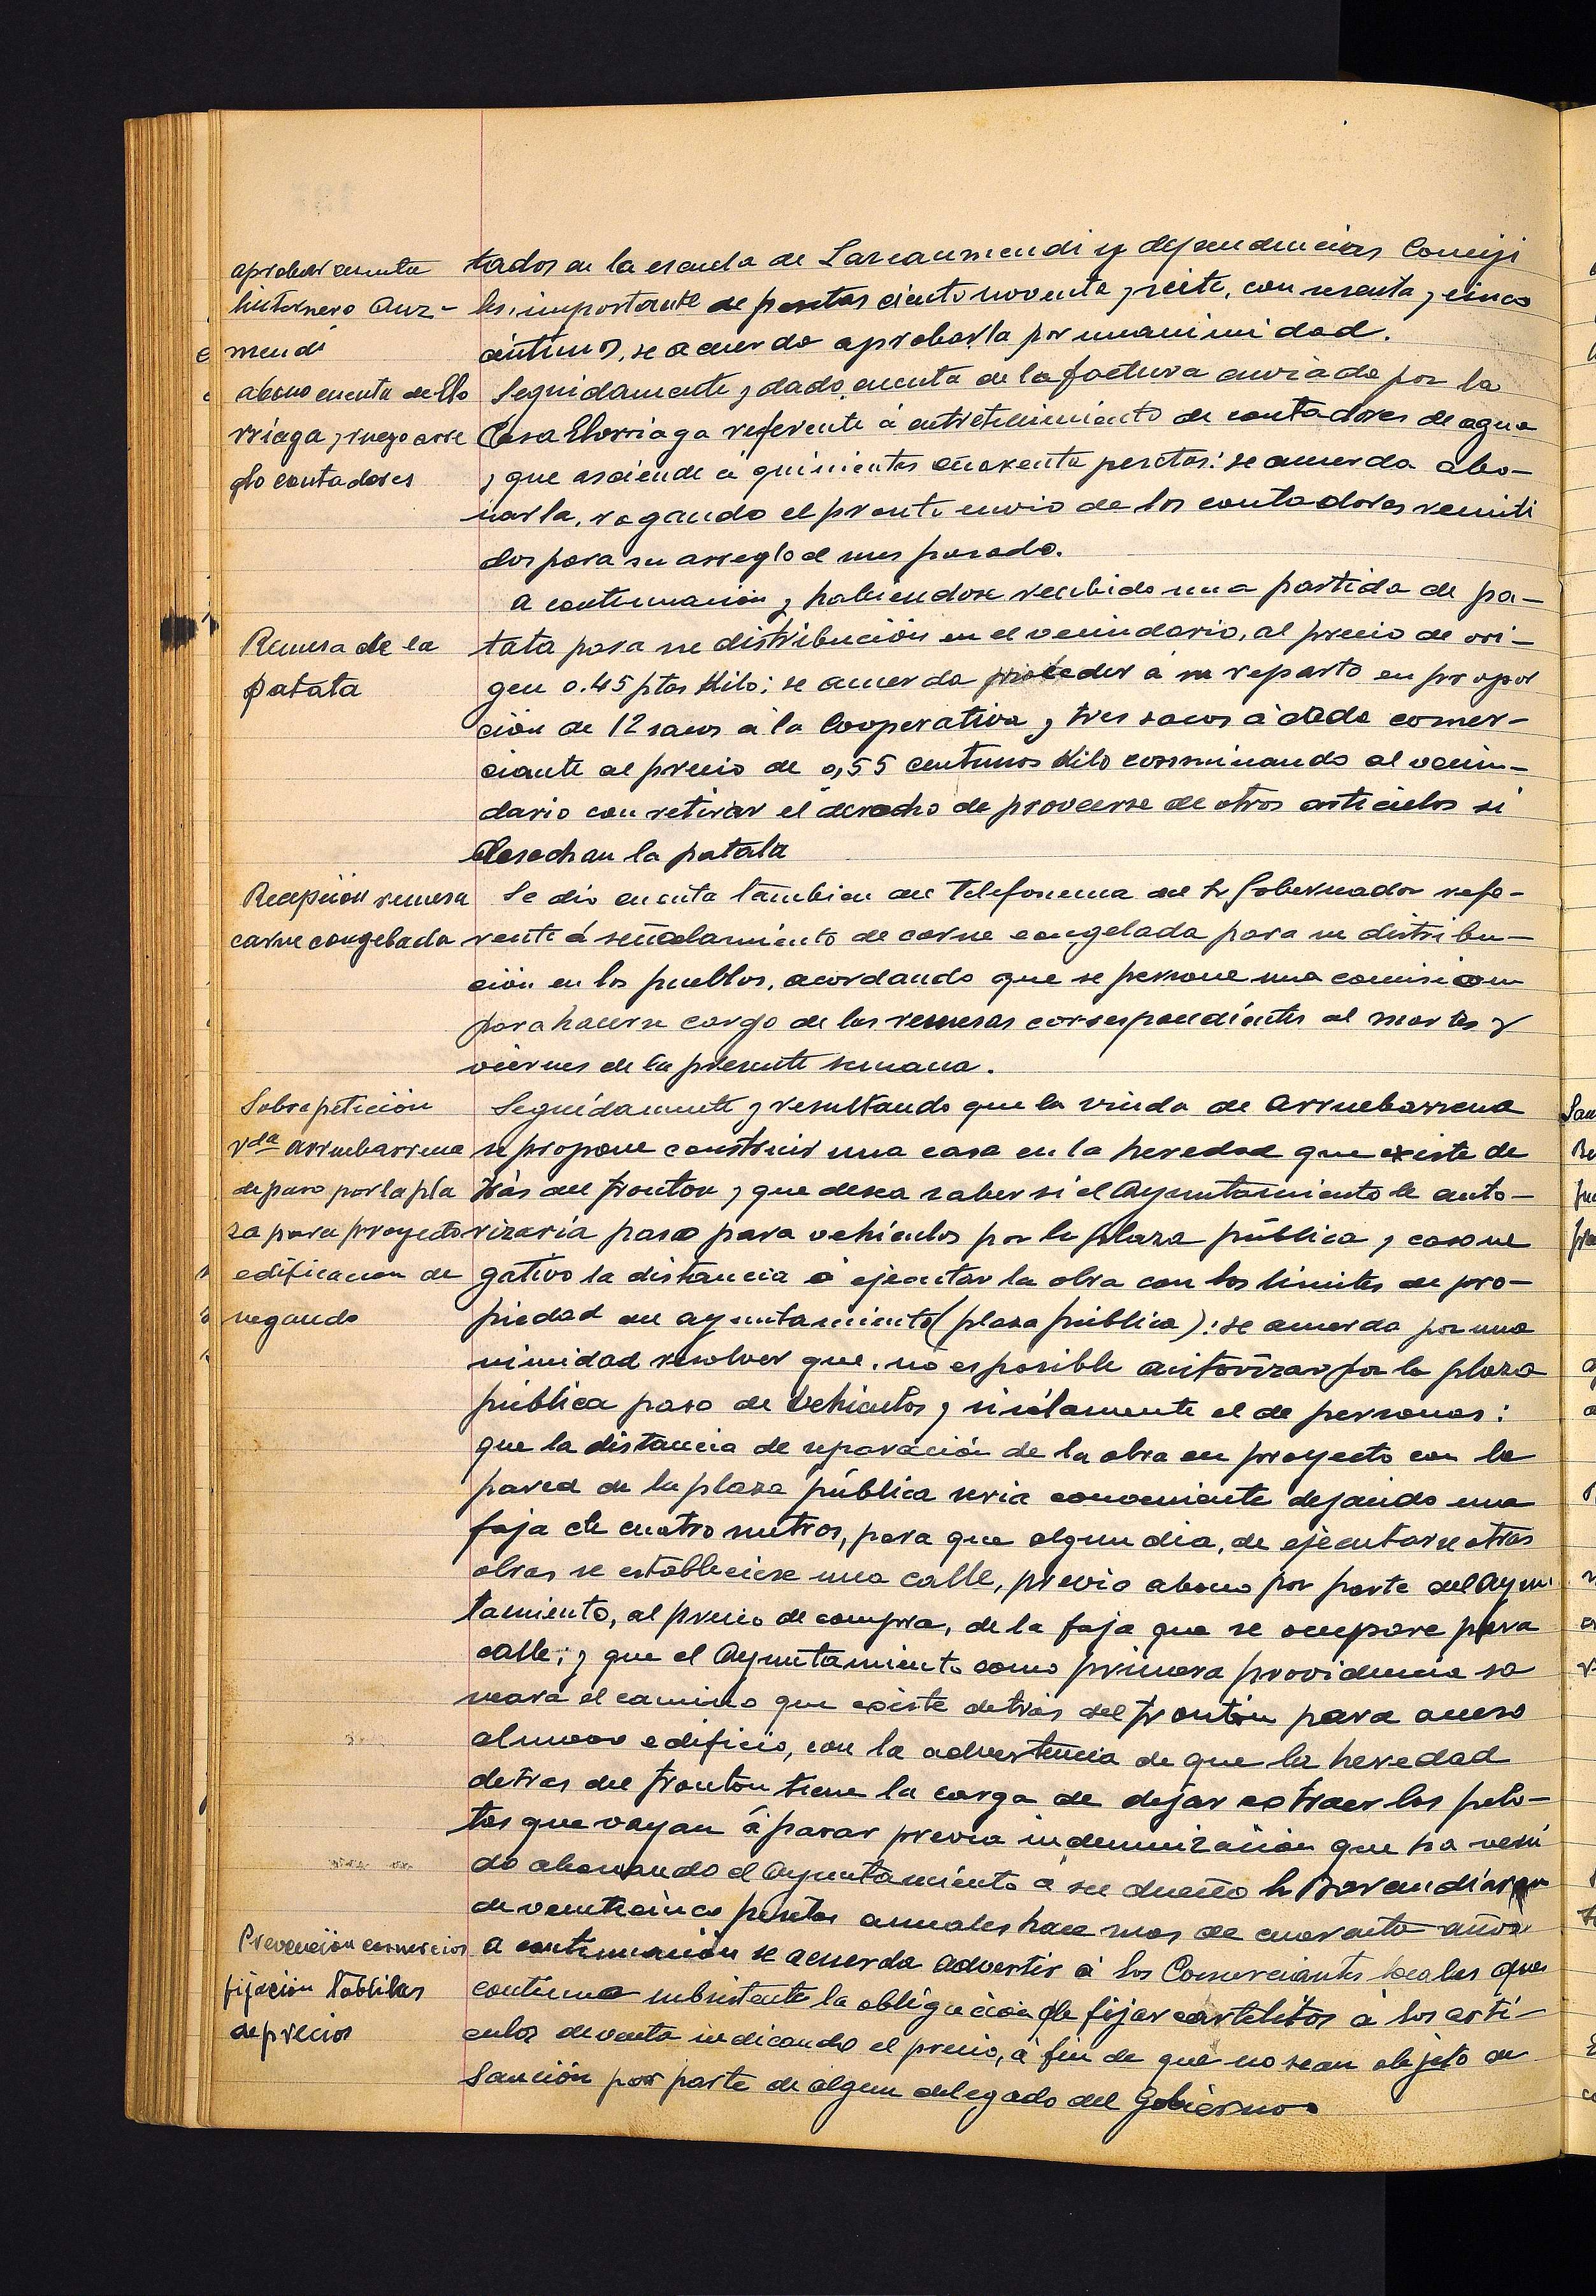 aprobar cuenta
hintornero Auz-
mendi
tados en la escuela de Larcaumendi y dependencias Conceji
les, importante de pesetas ciento noventa y siete, con sesenta y cinco
céntimos, se acuerda aprobarla por unanimidad.
abono cuenta de Elo
rriaga, y ruego arre
glo contadores
Seguidamente y dado cuenta de la factura enviada por la
Casa Elorriaga referente á entretenimiento de contadores de agua
y que asciende á quinientas cuarenta pesetas: se acuerda abo-
narla, rogando el pronto envio de los contadores remiti
dos para su arreglo el mes pasado.
Remesa de la
patata
A continuación y habiendose recibido una partida de pa-
tata para su distribución en el vecindario, al precio de ori-
gen 0.45 ptas Kilo; se acuerda proceder á su reparto en propor
ción de 12 sacos á la Cooperativa y tres sacos á cada comer-
ciante al precio de 0,55 centimos Kilo conminando al vecin-
dario con retirar el derecho de proveerse de otros articulos si
desechan la patata
Recepción remesa
carne congelada
Se dió cuenta tambien del Telefonema del Sr Gobernador refe-
rente á señalamiento de carne congelada para su distribu-
ción en los pueblos, acordando que se persone una comision
para hacerse cargo de las remesas correspondientes al martes y
viernes de la presente semana.
Sobre petición
Vda Arruebarrena
de paso por la pla
za para proyecto
edificacion de
negando
Seguidamente y resultando que la viuda de Arruebarrena
se propone construir una casa en la heredad que existe de
trás del fronton y que desea saber si el Ayuntamiento le auto-
rizaria paso para vehiculos por la plaza pública, y caso ne
gativo la distancia á ejecutar la obra con los limites de pro-
piedad del ayuntamiento (plaza pública): se acuerda por una
nimidad resolver que, no es posible autorizar por la plaza
pública paso de Vehiculos y sí sólamente el de personas:
que la distancia de separación de la obra en proyecto con la
pared de la plaza pública seria conveniente dejando una
faja de cuatro metros, para que algun dia, de ejecutarse otras
obras se estableciese una calle, previo abono por parte del Ayun
tamiento, al precio de compra, de la faja que se ocupare para
calle; y que el Ayuntamiento como primera providencia sa
neara el camino que existe detrás del frontón para acceso
al nuevo edificio, con la advertencia de que la heredad
detras del fronton tiene la carga de dejar extraer las pelo-
tas que vayan á parar previa indemnización que ha veni
do abonando el Ayuntamiento á su dueño Sr Barandiaran
de veinticinco pesetas anuales hace mas de cuarenta años
Prevención comercios
fijación tablillas
de precios
A continuación se acuerda advertir á los Comerciantes locales que
continua subsistente la obligación de fijar cartelitos á los arti-
culos de venta indicando el precio, á fin de que no sean objeto de
Sanción por parte de algun delegado del Gobierno